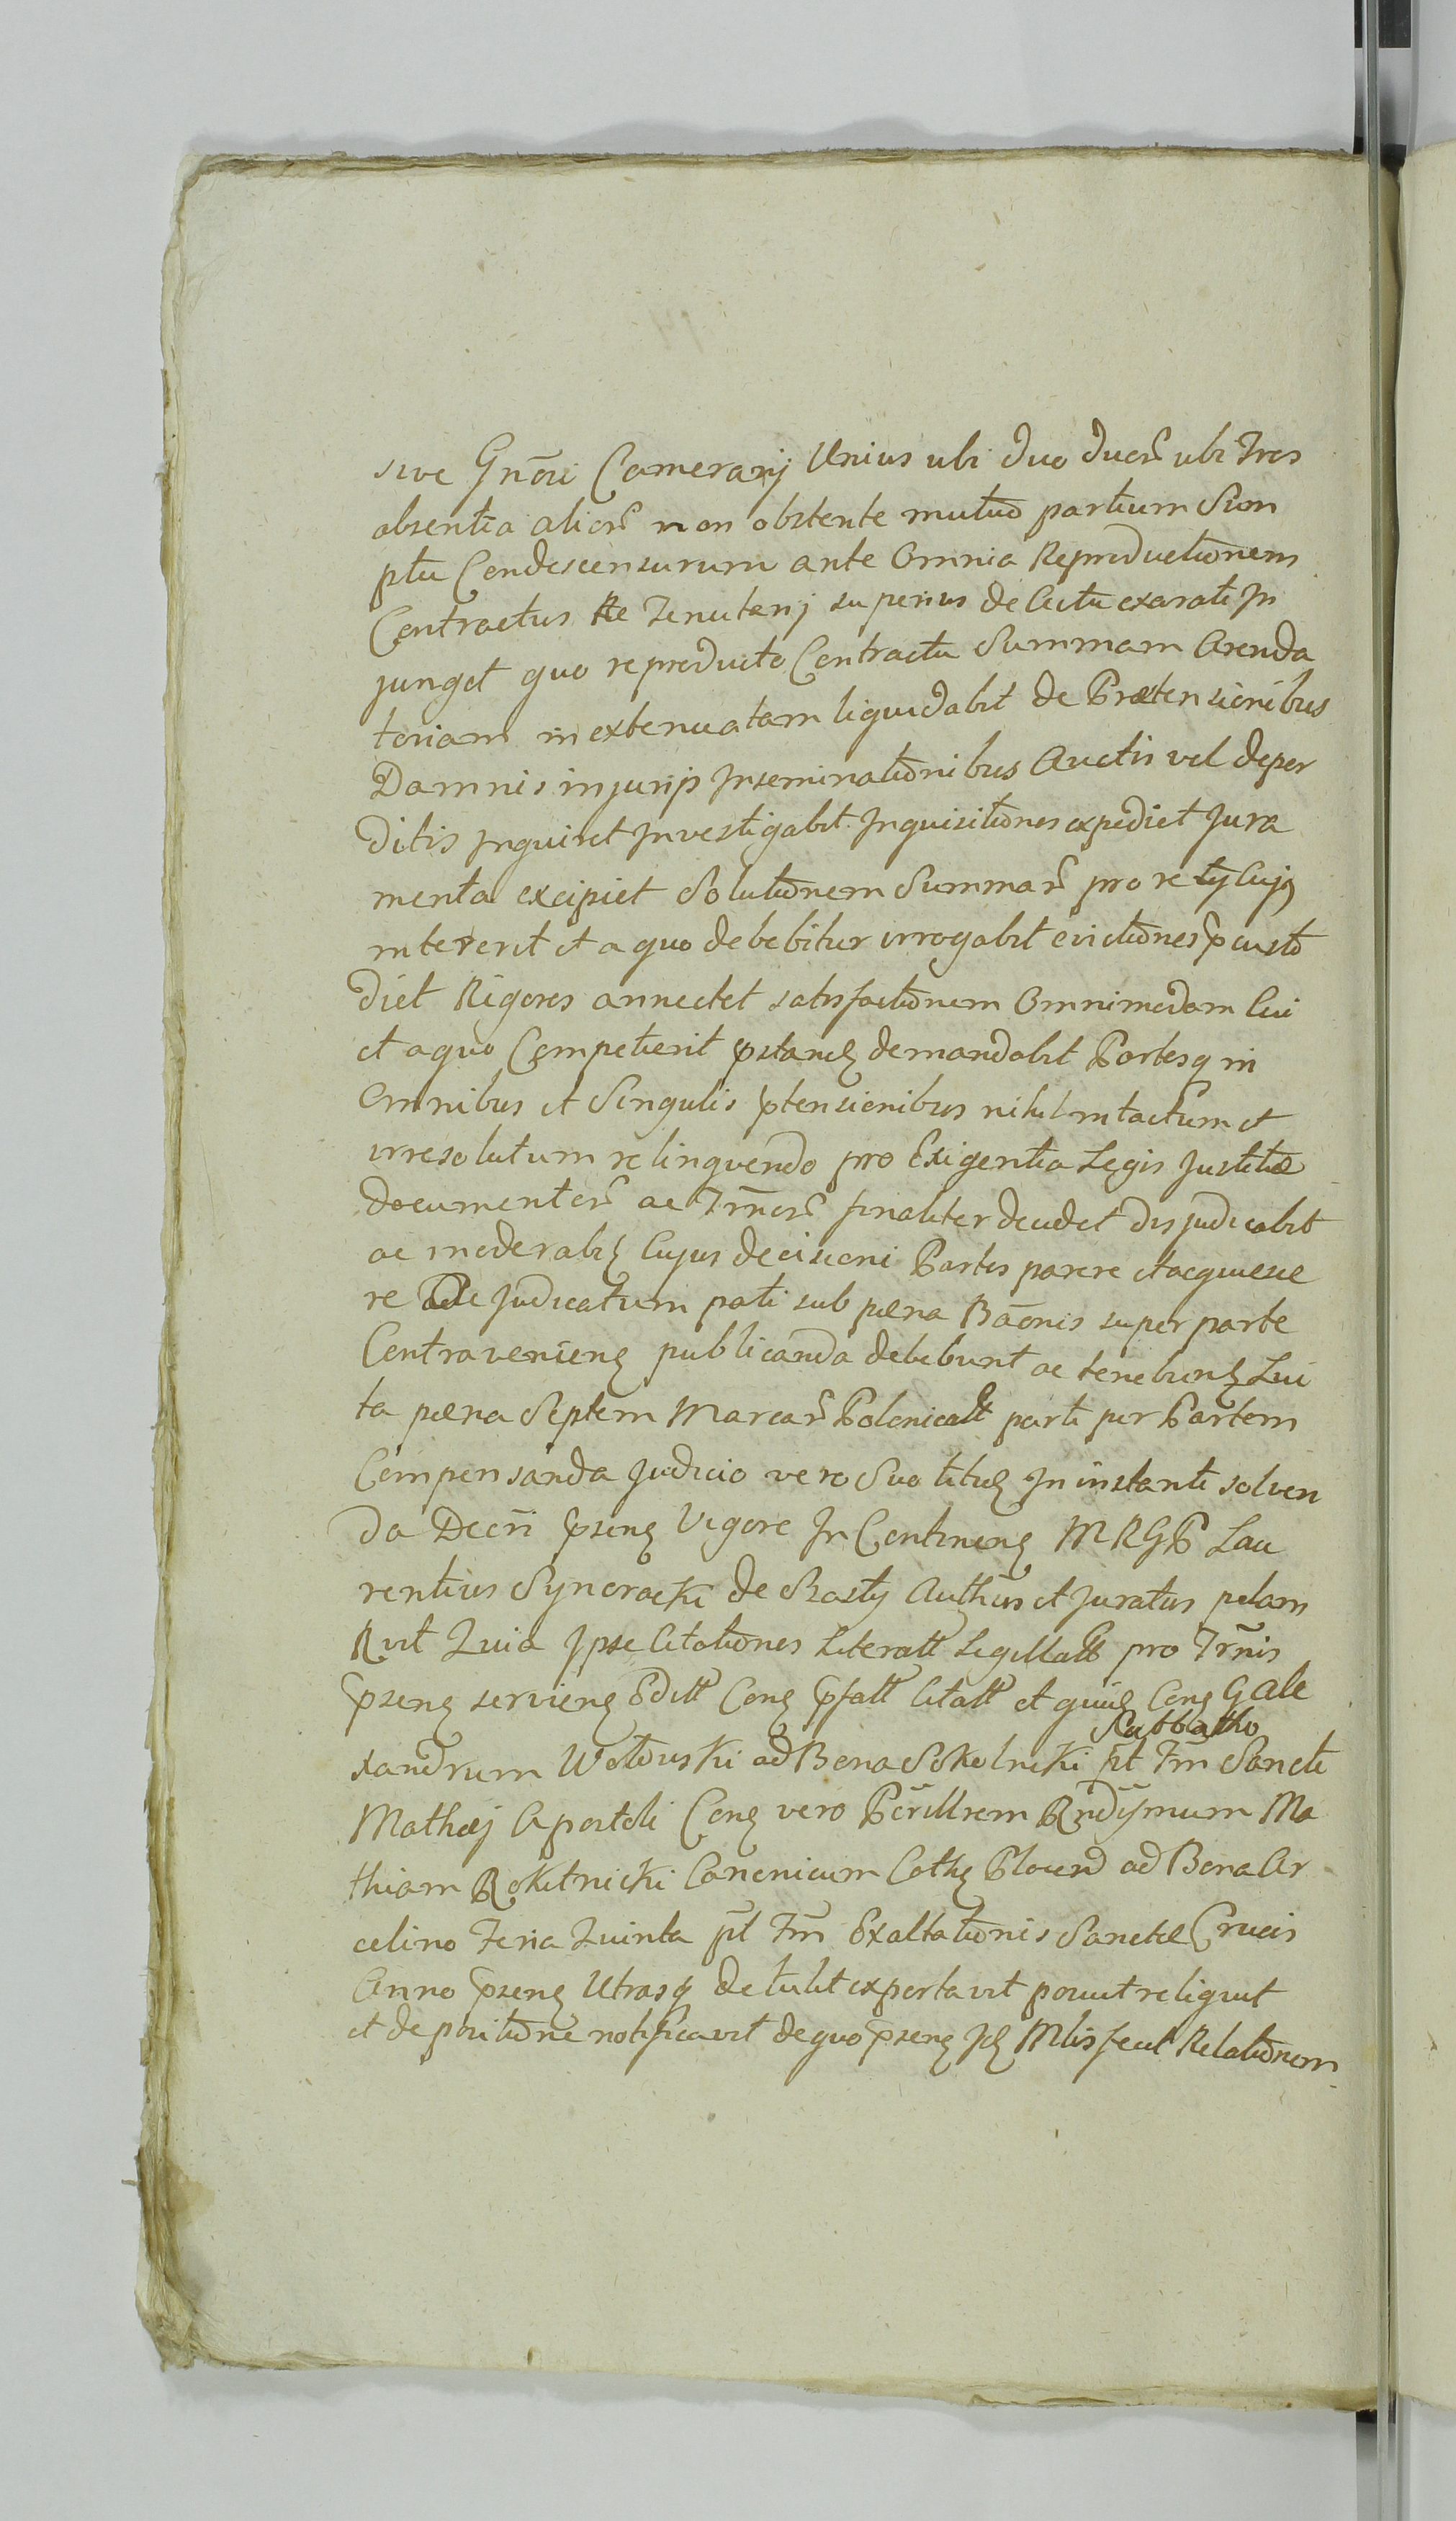 sive Gnōri Camerarij Unius ubi duo duor ubi Tres
absentia alior non obstente mutuo partium Sum
ptu Condescensurum ante Omnia Reproductionem
Contractus Re Tenutarij superius de Actu exarati In
junget quo reproducto Contractu Summam Arenda
toriam inextenuatam liquidabit de Prætensionibus
Damnis injurijs Inseminationibus Auctis vel deper
ditis Inquiret Investigabit Inquisitiones expediet Jura
menta excipiet Solutionem Summar pro re cujq
intererit et a quo debebitur irrogabit evictiones pcusto
diet Rigores annectet satisfactionem Omnimodam Cui
et a quo Competierit pstanđ demandabit Partesq in
Omnibus et Singulis ptensionibus nihil intactum et
irresolutum relinquendo pro Exigentia Legis Justitiæ
documentor ac Trnor finaliter decidet disjudicabit
ac moderabit Cujus decisioni Partes parere et acquiesce
re Judicatum pati sub pæna Bāonis super parte
Contravenienē publicanda debebunt ac tenebunt Lui
ta pæna Septem Marcar Polonicall parti per Partem
Compensanda Judicio vero Suo titulē In instanti solven
da Decri psenē Vigore In Continenē MRGP Lau
rentius Syncracki de Basty Authus et Juratus palam
R vit Quia Ipse Citationes Literatt Sigillatt pro Trnis
psenē servienē Editt Conē pfatt Citatt et quidē Conē G Ale
Sabbatho
xandrum Wołowski ad Bona Sokolniki pt Fm Sancti
Mathæj Apostoli Conē vero Perillrem Rndissmum Ma
thiam Rokitnicki Canonicum Cathē Plocenē ad Bona Ar
celino Feria Quinta pt Fm Exaltationis Sanctæ Crucis
Anno psenē Utrasq detulit exportavit posuit reliquit
et de positione notificavit de quo psenē Mlis fecit Relationem